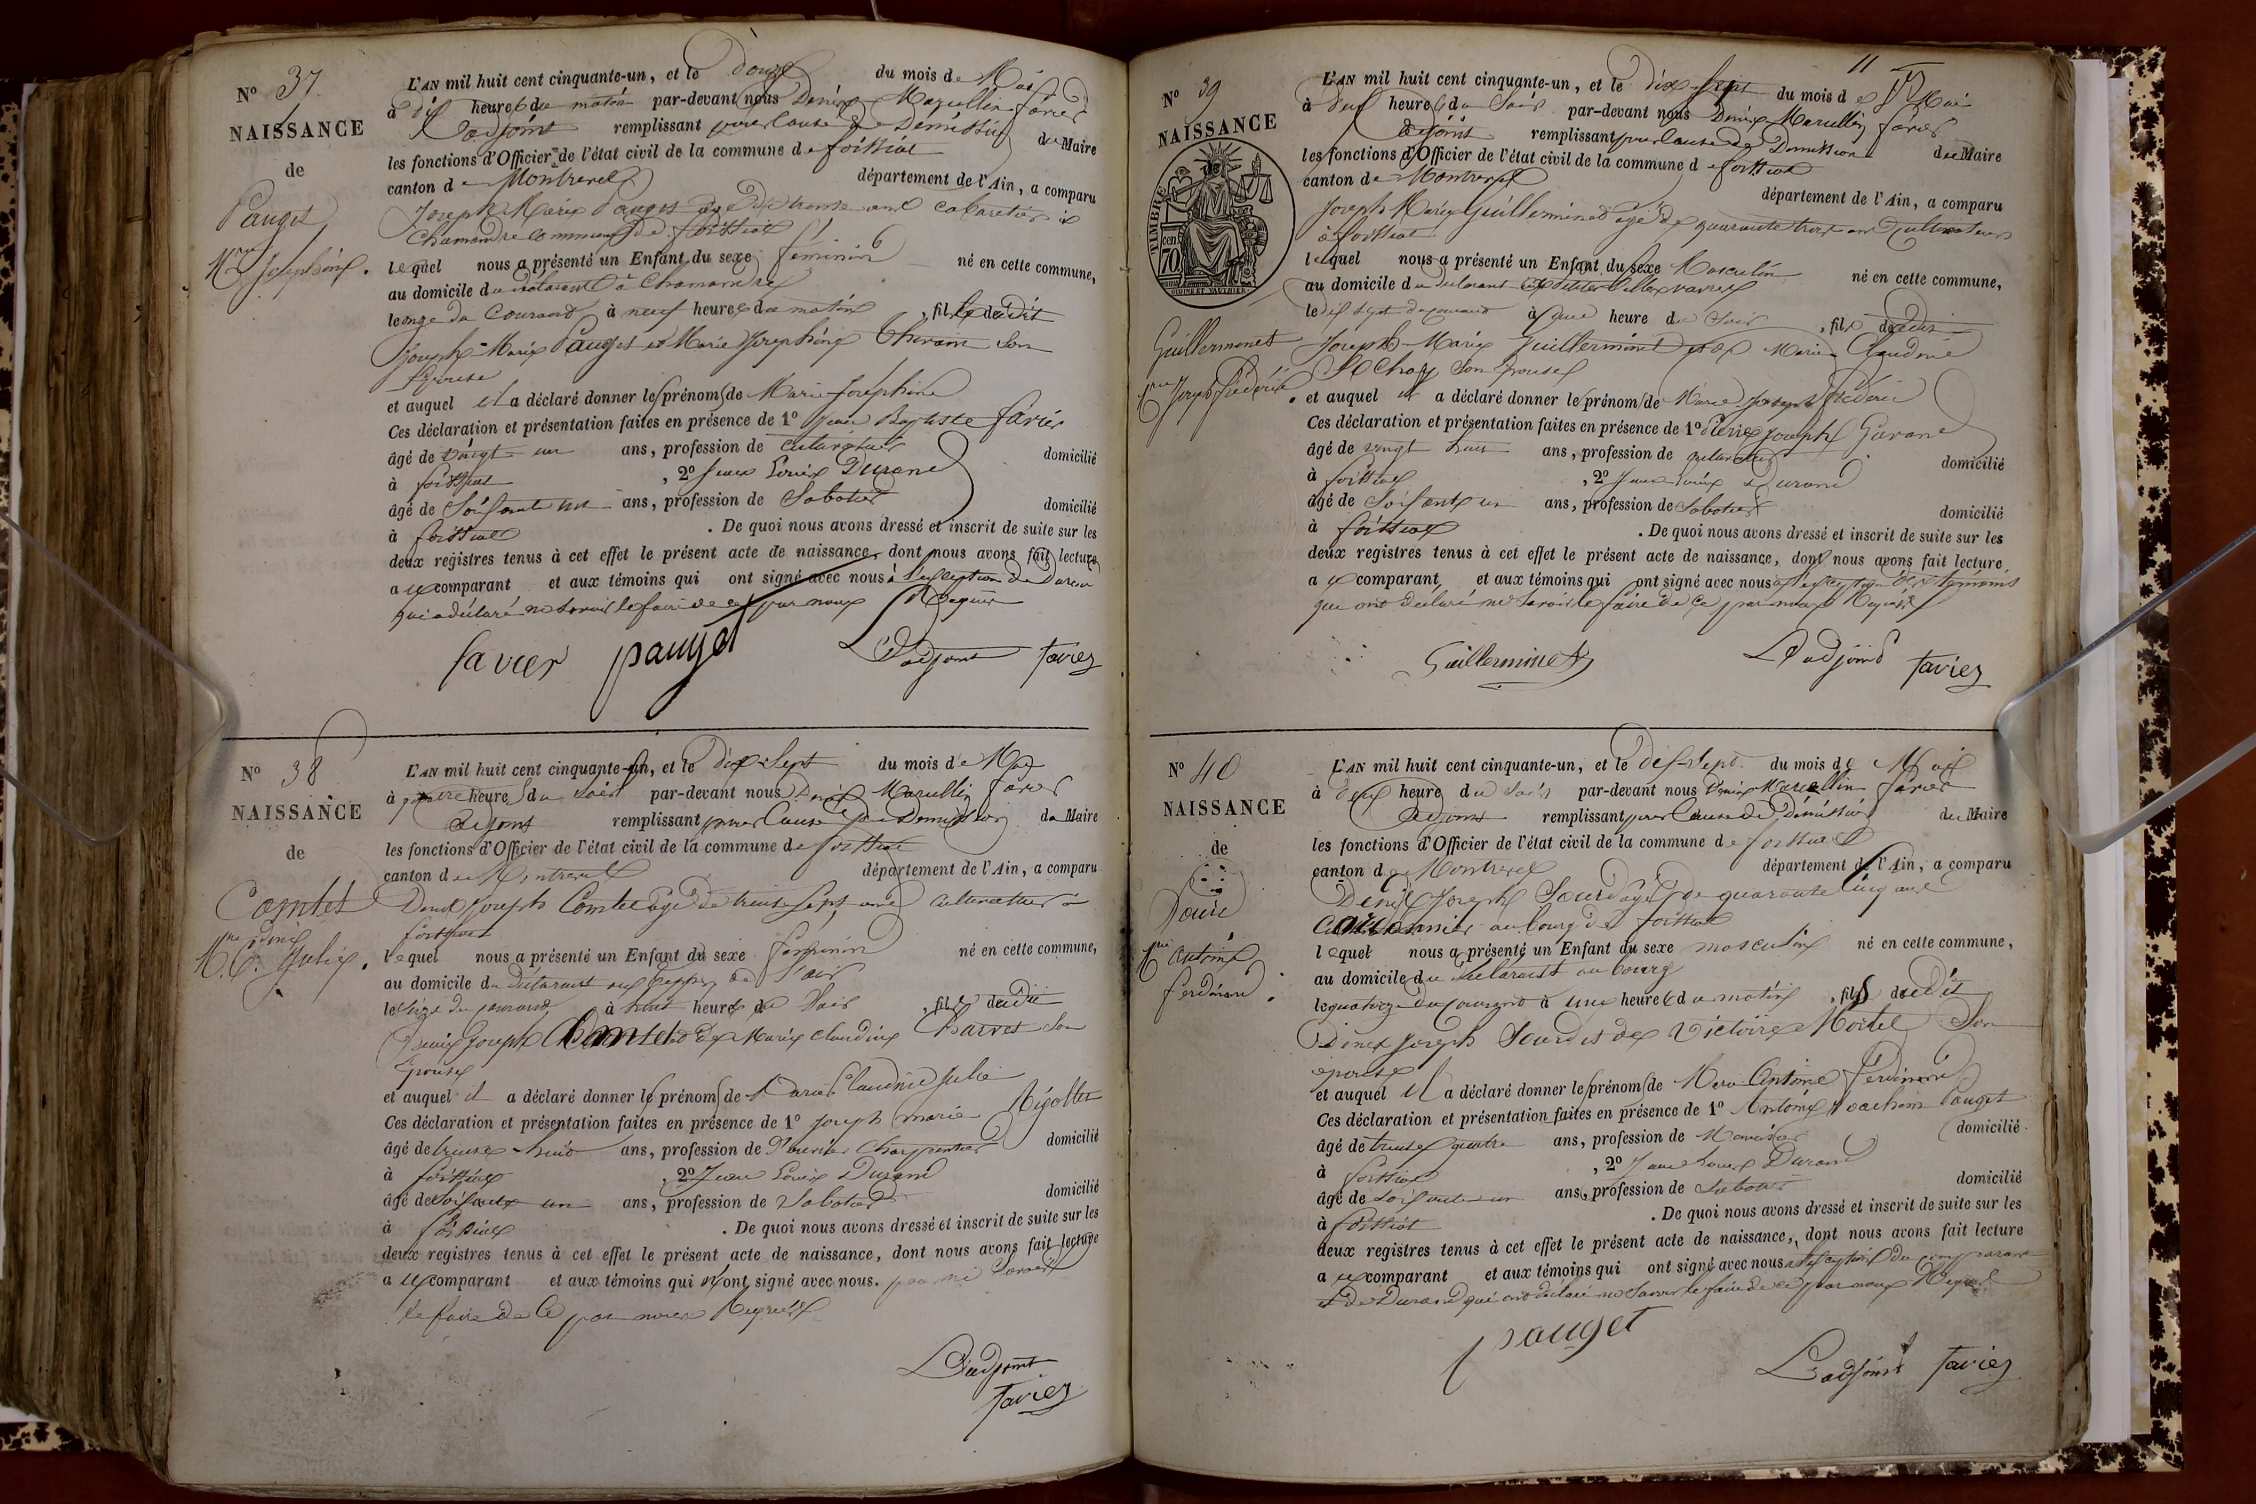 N° 37
NAISSANCE
de
Pauget
Mie Josephine.
L'AN mil huit cent cinquante-un, et le douze du mois de Mai
à dix heures du matin par-devant nous Denis Marcellin Favier
L'adjoint remplissant pour cause de Démission du Maire
les fonctions d'Officier de l'état civil de la commune de foissiat
canton de Montrevel département de l'Ain, a comparu
Joseph Marie Pauget agé de trente ans cabaretier à
Chamandre commune de foissiat
lequel nous a présenté un Enfant du sexe féminin né en cette commune,
au domicile du déclarant à Chamandre
le onze du Courant à neuf heures du matin, fille dudit
Joseph Marie Pauget et Marie Josephine Chevam son
Epouse
et auquel il a déclaré donner les prénoms de Marie Josephine
Ces déclaration et présentation faites en présence de 1° Jean Baptiste favier
âgé de vingt un ans, profession de cultivateur domicilié
à foissiat, 2° Jean Louis Durand
âgé de Soissante un ans, profession de Sabotier domicilié
à foissiat. De quoi nous avons dressé et inscrit de suite sur les
deux registres tenus à cet effet le présent acte de naissance, dont nous avons fait lecture
au comparant et aux témoins qui ont signé avec nous à l'exception de Durand
qui a déclaré ne Savoir le faire de ce par nous Requis
favier pauget L'adjoint favier
N° 38
NAISSANCE
de
Comtet
Mie Cdine Julie.
L'AN mil huit cent cinquante-un, et le dix-Sept du mois de Mai
à quatre heures du soir par-devant nous Denis Marcellin Favier
adjoint remplissant pour Cause de Démission du Maire
les fonctions d'Officier de l'état civil de la commune de foissiat
canton de Montrevel département de l'Ain, a comparu
Denis Joseph Comtet agé de trente Sept ans cultivateur à
foissiat
lequel nous a présenté un Enfant du sexe féminin né en cette commune,
au domicile du déclarant
le Seize du courant à huit heures du Soir, fille dudit
Denis Joseph Comtet et de Marie Claudine Charvet Son
Epouse
et auquel il a déclaré donner les prénoms de Marie Claudine Julie
Ces déclaration et présentation faites en présence de 1° Joseph Marie Rigollet
âgé de trente huit ans, profession de Charpentier domicilié
à foissiat, 2° Jean Louis Durand
âgé de soissante un ans, profession de Sabotier domicilié
à foissiat. De quoi nous avons dressé et inscrit de suite sur les
deux registres tenus à cet effet le présent acte de naissance, dont nous avons fait lecture
au comparant et aux témoins qui n'ont signé avec nous. pour ne Savoir
le faire de Ce par nous Requis
L'adjoint
favier
11
N° 39
NAISSANCE
de
TIMBRE
70 cen
Guillermenet
Mie Joseph Frédéric.
L'AN mil huit cent cinquante-un, et le dix Sept du mois de Mai
à deux heures du Soir par-devant nous Denis Marcellin favier
adjoint remplissant pour Cause de Démission du Maire
les fonctions d'Officier de l'état civil de la commune de foissiat
canton de Montrevel département de l'Ain, a comparu
Joseph Marie Guillerminet agé de quarante trois ans Cultivateur
à foissiat
lequel nous a présenté un Enfant du sexe Masculin né en cette commune,
au domicile du déclarant
le dix Sept du courant à une heure du Soir, fils dudit
Joseph Marie Guillerminet et de Marie Claudine
Chay Son Epouse
et auquel il a déclaré donner les prénoms de Marie Joseph Frédéric
Ces déclaration et présentation faites en présence de 1° Pierre Joseph
âgé de vingt huit ans, profession de domicilié
à foissiat, 2° Jean Louis Durand
âgé de Soissante un ans, profession de Sabotier domicilié
à foissiat. De quoi nous avons dressé et inscrit de suite sur les
deux registres tenus à cet effet le présent acte de naissance, dont nous avons fait lecture
au comparant et aux témoins qui ont signé avec nous à l'exception des témoins
qui ont déclaré ne Savoir le faire de ce par nous Requis
Guillerminet L'adjoint favier
N° 40
NAISSANCE
de
Mie antoine
ferdinand.
L'AN mil huit cent cinquante-un, et le dix-Sept du mois de Mai
à deux heures du Soir par-devant nous Denis Marcellin favier
adjoint remplissant pour Cause de Démission du Maire
les fonctions d'Officier de l'état civil de la commune de foissiat
canton de Montrevel département de l'Ain, a comparu
Denis Joseph Sourd agé de quarante cinq ans
au bourg de foissiat
lequel nous a présenté un Enfant du sexe masculin né en cette commune,
au domicile du déclarant au bourg
le quatorze du courant à une heure du matin, fils dudit
Denis Joseph Sourd et de Victoire Mortel Son
epouse
et auquel il a déclaré donner les prénoms de Marie Antoine Ferdinand
Ces déclaration et présentation faites en présence de 1° Antoine Joachim Pauget
âgé de trente quatre ans, profession de Menuisier domicilié
à foissiat, 2° Jean Louis Durand
âgé de soissante un ans, profession de Sabotier domicilié
à foissiat. De quoi nous avons dressé et inscrit de suite sur les
deux registres tenus à cet effet le présent acte de naissance, dont nous avons fait lecture
au comparant et aux témoins qui ont signé avec nous à l'exception du comparant
et de Durand qui ont déclaré ne Savoir le faire de ce par nous Requis
pauget L'adjoint favier